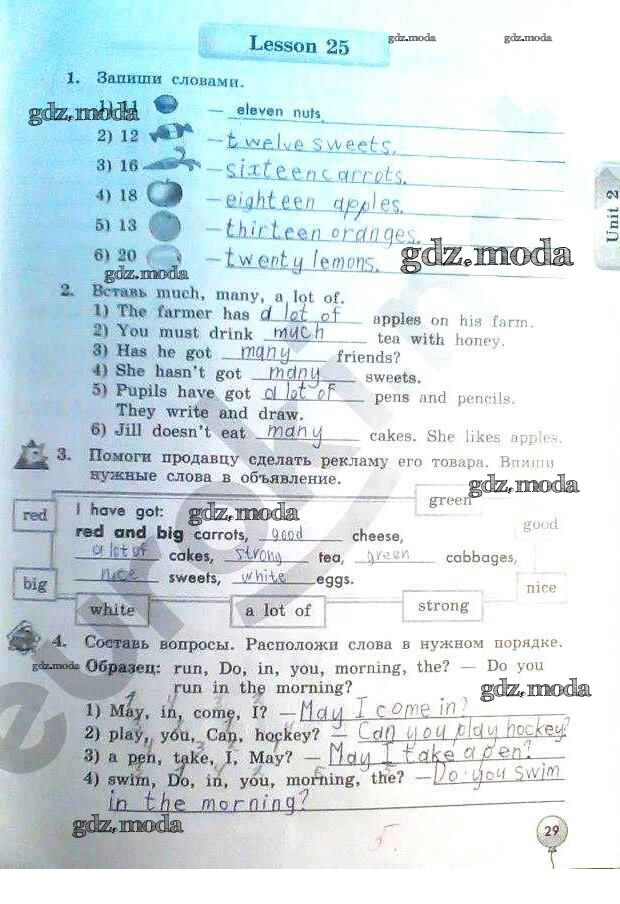 Lesson 25
gdz.moda
gdz.moda
1. Запиши словами.
1) 11 — eleven nuts.
gdz.moda
2) 12 — twelve sweets.
3) 16 — sixteen carrots.
4) 18 — eighteen apples.
5) 13 — thirteen oranges.
6) 20 — twenty lemons.
gdz.moda
gdz.moda
Unit 2
2. Вставь much, many, a lot of.
1) The farmer has a lot of apples on his farm.
2) You must drink much tea with honey.
3) Has he got many friends?
4) She hasn't got many sweets.
5) Pupils have got a lot of pens and pencils.
They write and draw.
6) Jill doesn't eat many cakes. She likes apples.
3. Помоги продавцу сделать рекламу его товара. Впиши
нужные слова в объявление.
gdz.moda
green
red
I have got:
gdz.moda
good
red and big carrots, good cheese,
a lot of cakes, strong tea, green cabbages,
big
nice sweets, white eggs.
nice
white
a lot of
strong
4. Составь вопросы. Расположи слова в нужном порядке.
gdz.moda
Образец: run, Do, in, you, morning, the? — Do you
run in the morning?
gdz.moda
1) May, in, come, I? — May I come in?
2) play, you, Can, hockey? — Can you play hockey?
3) a pen, take, I, May? — May I take a pen?
4) swim, Do, in, you, morning, the? — Do you swim
in the morning?
gdz.moda
5.
29